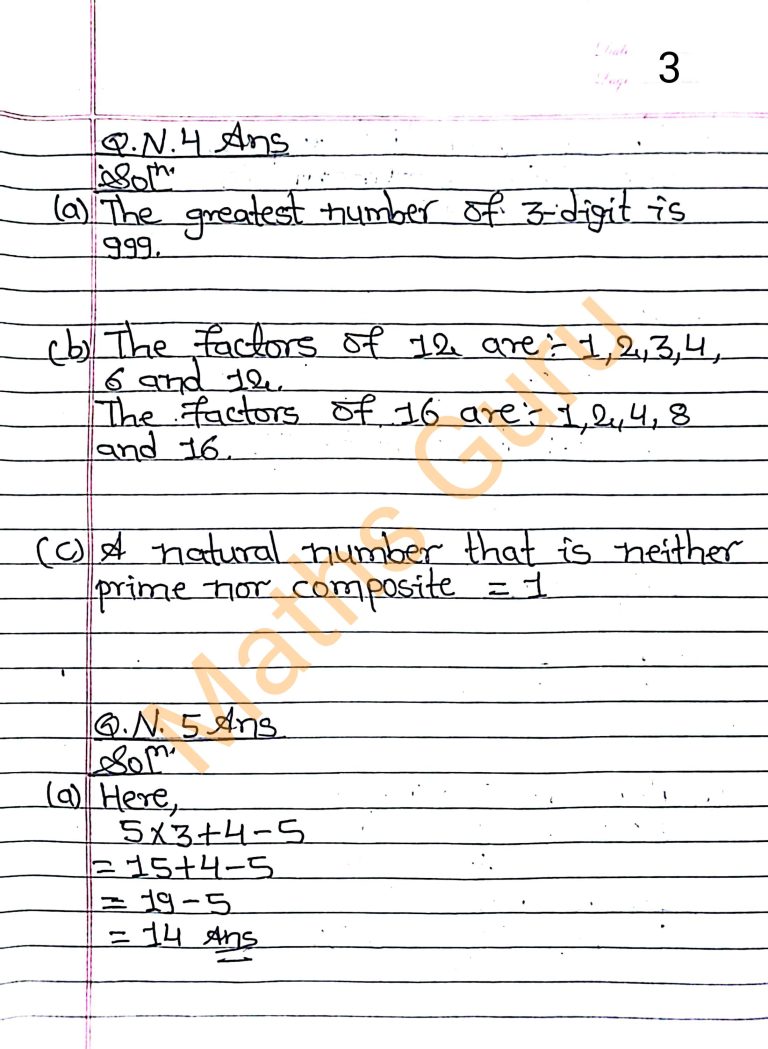 3
Q.N.4 Ans
Solⁿ.
(a) The greatest number of 3-digit is
999.
(b) The factors of 12 are:- 1,2,3,4,
6 and 12.
The factors of 16 are:- 1,2,4,8
and 16.
(c) A natural number that is neither
prime nor composite = 1
Maths Guru
Q.N. 5 Ans
Solⁿ.
(a) Here,
5×3+4-5
= 15+4-5
= 19-5
= 14 Ans